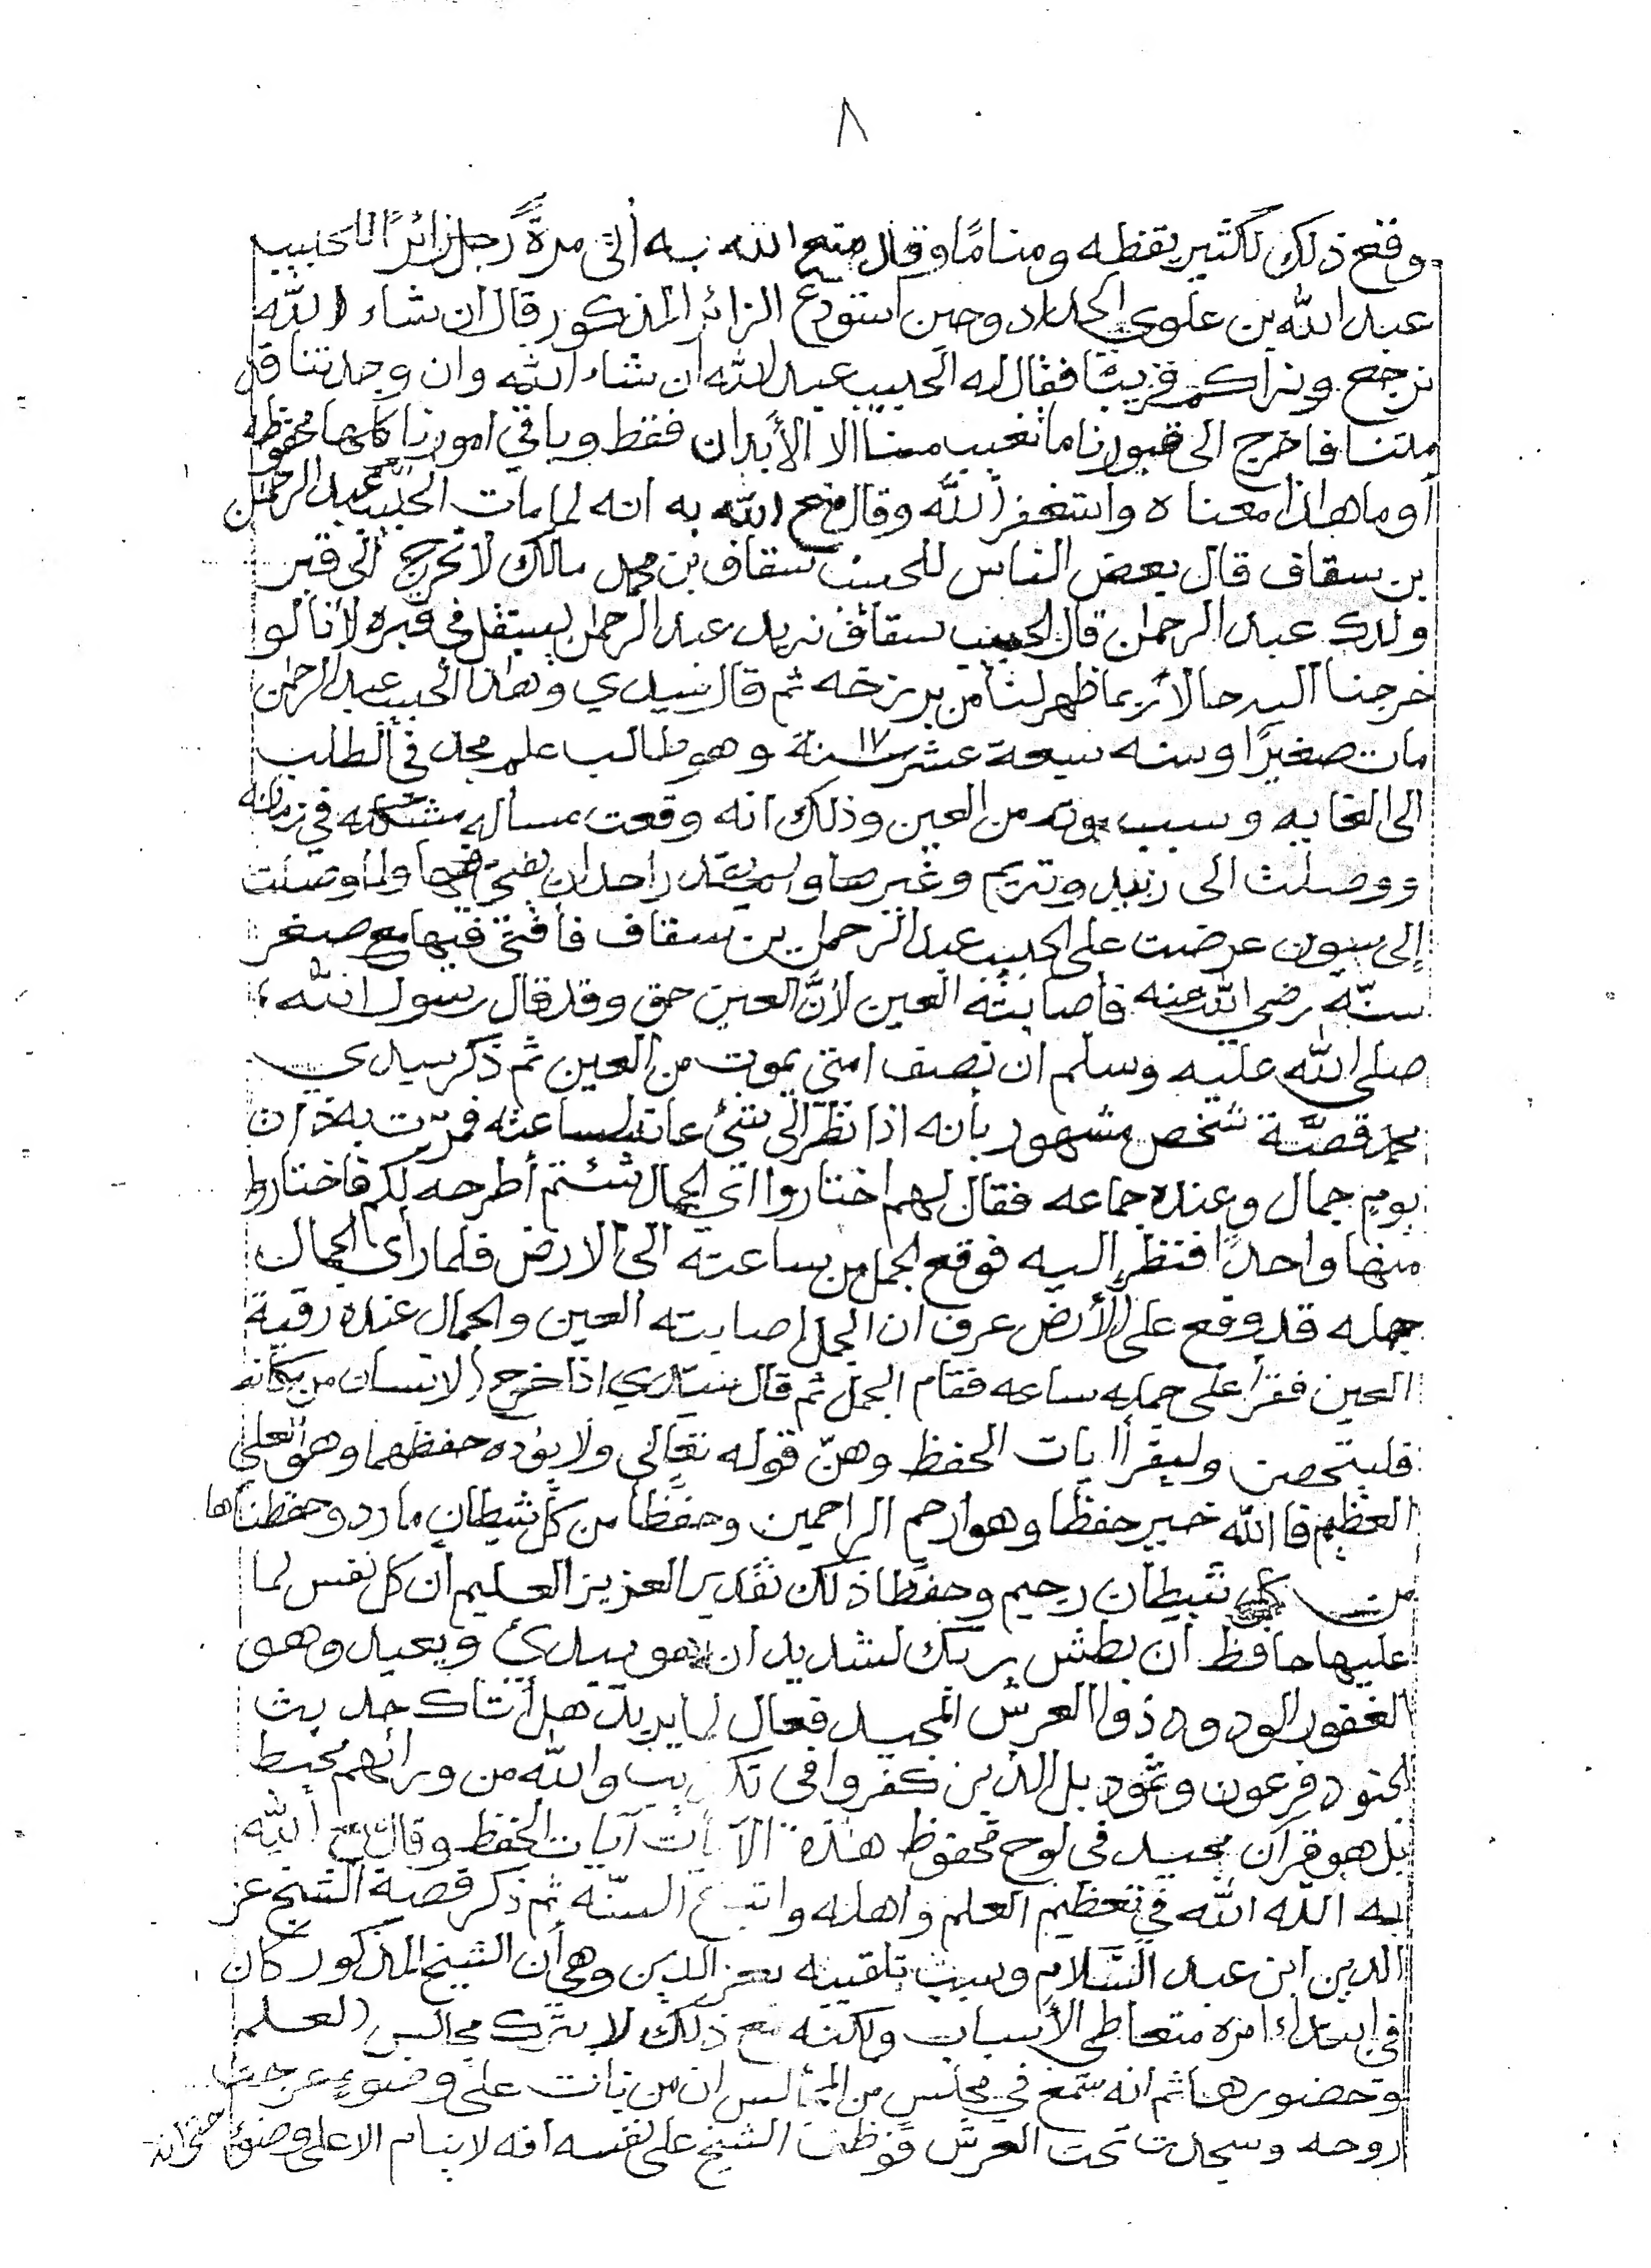 ٨
وقع ذلك لكثير يقظه ومنامًا وقال متع الله به أتى مرةً رجل زائرًا للحبيب
عبد الله بن علوي الحداد وحين استودع الزائر المذكور قال ان شاء الله
نرجع ونراكم قريبًا فقال له الحبيب عبد الله أن شاء الله وان وجدتنا قد
متنا فاخرج الى قبورنا ما تغيب منا الا الأبدان فقط وباقي امورنا كلها محفوظه
أو ما هاذا معناه وأستغفر الله وقال متع الله به انه لما مات الحبيب عبد الرحمن
بن سقاف قال بعض الناس للحبيب سقاف بن محمد مالك لا تخرج الى قبر
ولدك عبد الرحمان قال الحبيب سقاف نريد عبد الرحمن يستقل في قبره لأنا لو
خرجنا اليه حالا ربما ظهر لنا من برزخه ثم قال سيدي وهاذا الحبيب عبد الرحمن
مات صغيرًا وسنه سبعة عشر ١٧ سنة وهو طالب علم مجد في الطلب
الى الغايه وسبب موته من العين وذلك انه وقعت مساله مشكله في زمانه
ووصلت الى زبيد وتريم وغيرها ولم يقدر احد ان يفتي فيها ولما وصلت
إلى سيون عرضت على الحبيب عبد الرحمن بن سقاف فأفتى فيها مع صغر
سنّه رضي الله عنه فأصابته العين لأنَّ العين حق وقد قال رسول الله
صلى الله عليه وسلم ان نصف امتي يموت من العين ثم ذكر سيدي
قصّة شخص مشهور بأنه اذا نظر الى شئ عانه لساعته فمرّت به ذات
يوم جمال وعنده جماعه فقال لهم اختاروا اي الجمال شئتم أطرحه لكم فاختاروا
منها واحدًا فنظر إليه فوقع الجمل من ساعته الى الارض فلما رأى الجمال
جمله قد وقع على الأرض عرف ان الجمل اصابته العين والجمال عنده رقية
العين فقرأ على جمله ساعه فقام الجمل ثم قال سيدي اذا خرج الانسان من مكانه
فليتحصن وليقرأ ايات الحفظ وهنّ قوله تعالى ولا يؤده حفظهما وهو العلي
العظيم فا الله خير حفظا وهو ارحم الراحمين وحفظا من كل شيطان مارد وحفظناها
من كل شيطان رجيم وحفظا ذلك تقدير العزيز العليم ان كل نفس لما
عليها حافظ ان بطش ربك لشديد انه هو يبدئ ويعيد وهو
الغفور الودود ذوا العرش المجيد فعال لما يريد هل أتاك حديث
الجنود فرعون وثمود بل الذين كفروا في تكذيب والله من ورائهم محيط
بل هو قرآن مجيد في لوح محفوظ هذه الآيات آيات الحفظ وقال متع الله
به الله الله في تعظيم العلم واهله واتباع السنّه ثم ذكر قصة الشيخ عز
الدين ابن عبد السّلام وسبب تلقيبه بعز الدين وهي أن الشيخ المذكور كان
في ابتداء امره متعاطي الأسباب ولكنه مع ذلك لا يترك مجالس العلم
وحضورها ثم انه سمع في مجلس من المجالس ان من بات على وضوء عرجت
روحه وسجدت تحت العرش فوظف الشيخ على نفسه انه لا ينام الا على وضوء حتى انه